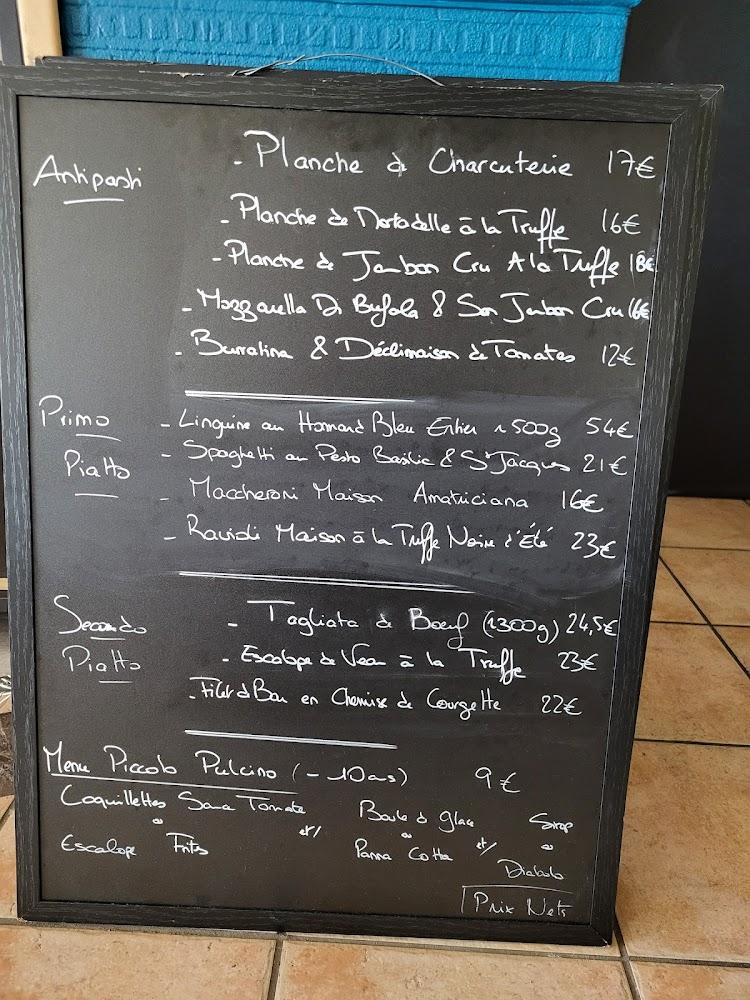 Antipasti
- Planche de Charcuterie 17€
- Planche de Mortadelle à la Truffe 16€
- Planche de Jambon Cru A la Truffe 18€
- Mozzarella Di Bufala & Son Jambon Cru 16€
- Burratina & Déclinaison de Tomates 12€
Primo
Piatto
- Linguine au Homard Bleu Entier ~500g 54€
- Spaghetti au Pesto Basilic & St Jacques 21€
- Maccheroni Maison Amatriciana 16€
- Ravioli Maison à la Truffe Noire d'Été 23€
Secondo
Piatto
- Tagliata de Boeuf (~300g) 24,5€
- Escalope de Veau à la Truffe 23€
- Filet de Bar en Chemise de Courgette 22€
Menu Piccolo Pulcino (-10ans) 9€
Coquillettes Sauce Tomate
ou
Escalope Frites
et/
Boule de glace
ou
Panna Cotta
et/
Sirop
ou
Diabolo
Prix Nets